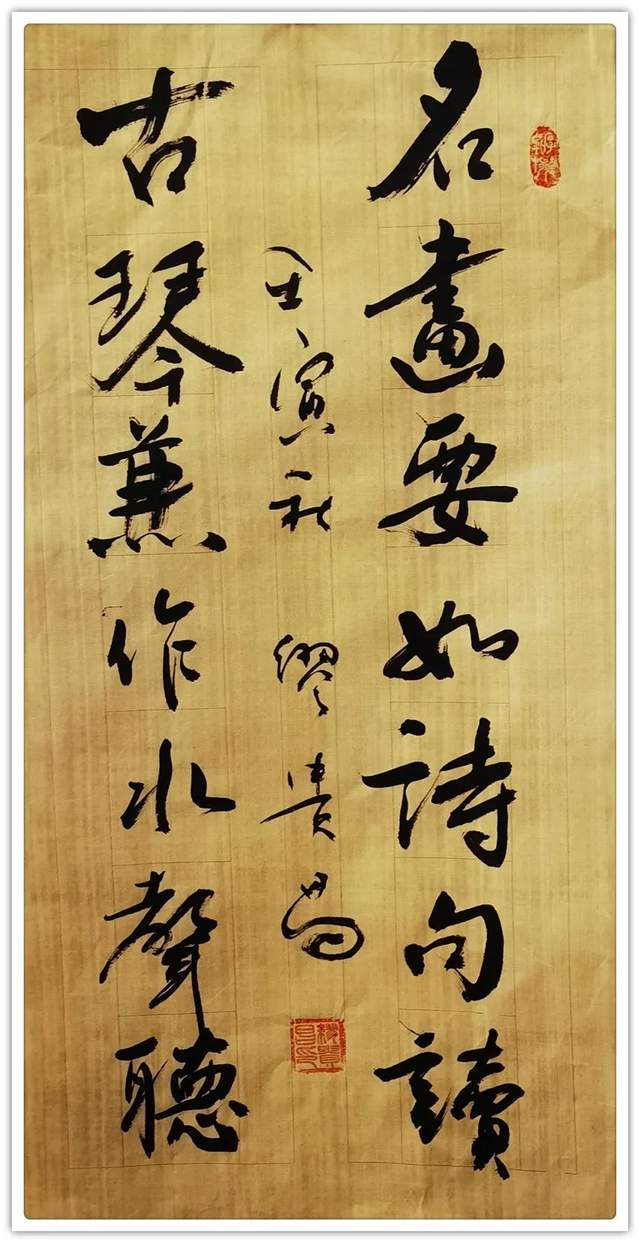 名畫要如詩句讀
古琴兼作水聲聽
壬寅秋 繆貴昌